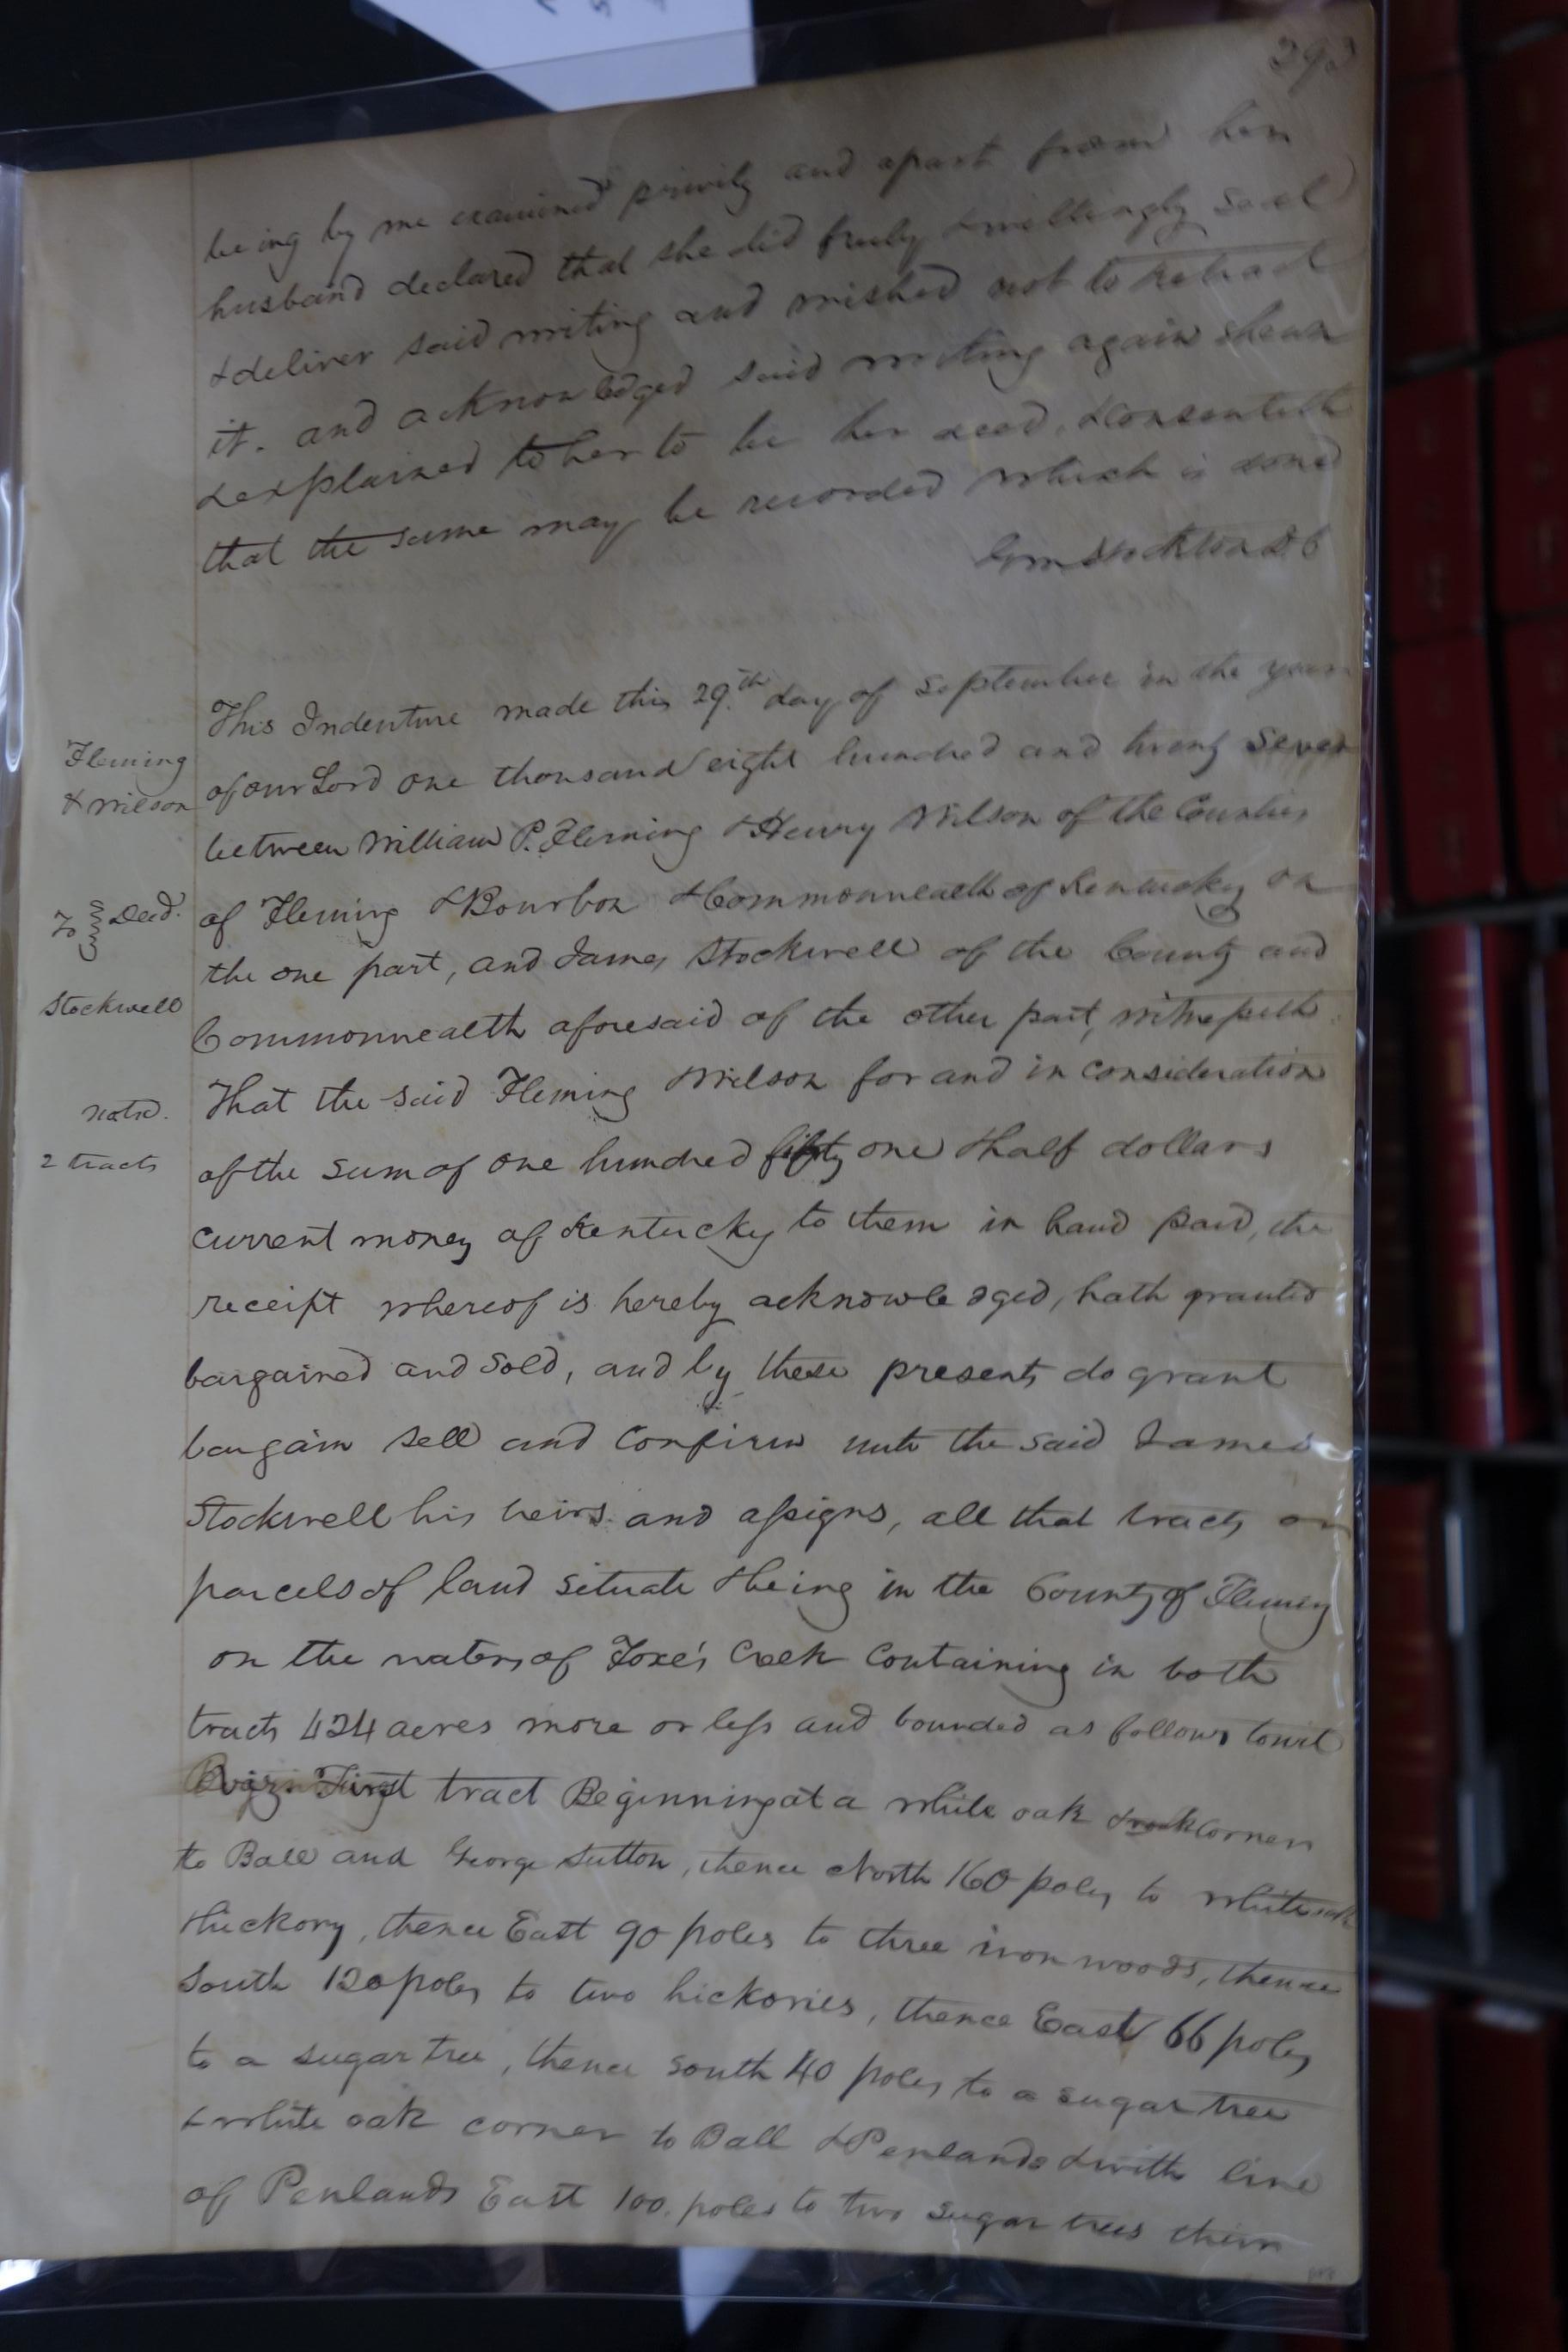 293
being by me examined privily and apart from her
husband declared that she did freely & willingly seal
& deliver said writing and wished not to retract
it. and acknowledged said writing again shewn
& explained to her to be her deed, & consenteth
that the same may be recorded which is done
Stockton D C
This Indenture made this 29th day of September in the year
of our Lord one thousand eight hundred and twenty seven
between William P. Fleming & Henry Wilson of the Counties
of Fleming & Bourbon & Commonwealth of Kentucky on
the one part, and James Stockwell of the County and
Commonwealth aforesaid of the other part, witnesseth
That the said Fleming & Wilson for and in consideration
of the sum of one hundred fifty one & half dollars
current money of Kentucky to them in hand paid, the
receipt whereof is hereby acknowledged, hath granted
bargained and sold, and by these presents do grant
bargain sell and confirm unto the said James
Stockwell his heirs and assigns, all that tracts or
parcels of land situate & being in the County of Fleming
on the waters of Foxe's Creek containing in both
tracts 424 acres more or less and bounded as follows towit
First tract Beginning at a white oak & rock corner
to Ball and George Sutton, thence North 160 poles to white oak
& hickory, thence East 90 poles to three iron woods, thence
South 120 poles to two hickories, thence East 66 poles
to a sugar tree, thence south 40 poles to a sugar tree
& white oak corner to Ball & Penlands & with line
of Penlands East 100. poles to two sugar trees thence
Fleming
& Wilson
To } Deed.
Stockwell
2 tracts